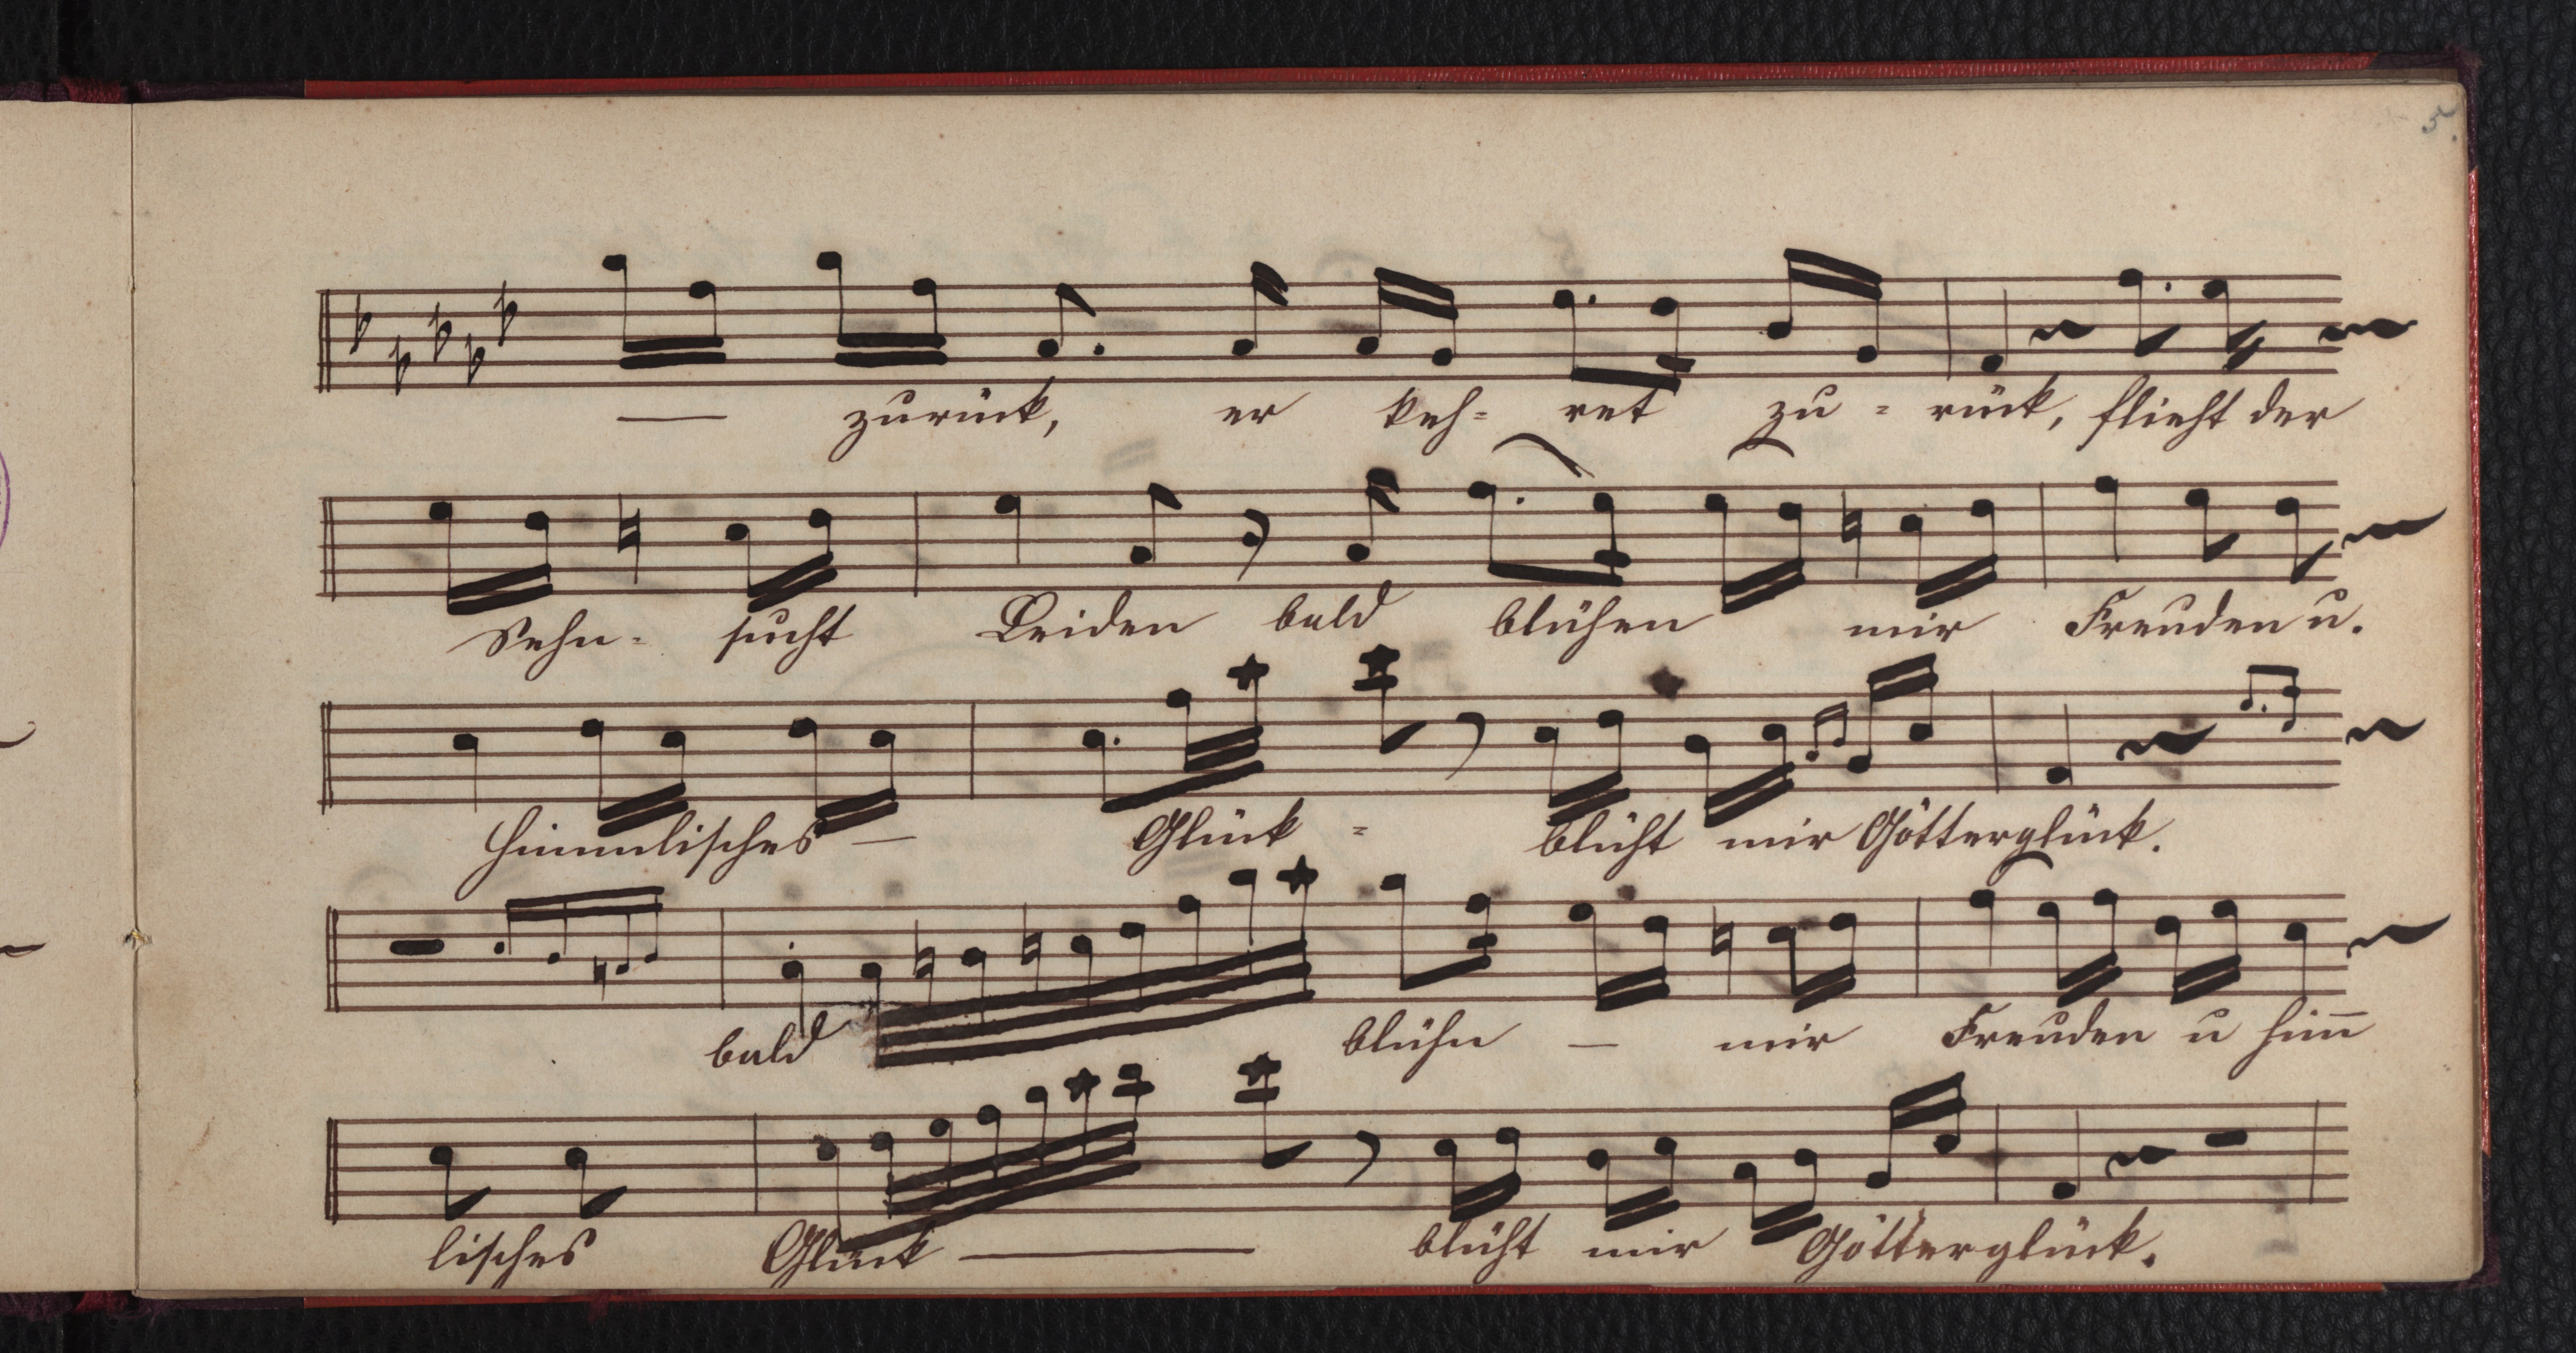 5.
— zurück, er keh- ret zu - rück, flieht der
Sehn- sucht Leiden bald blühen mir Freuden u.
himmlisches — Glück - blüht mir Götterglück.
bald blühn — mir Freuden u him̅
lisches Glück — blüht mir Götterglück.